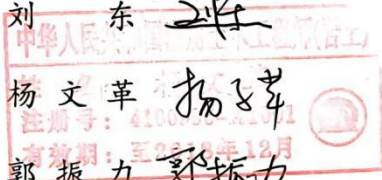 刘 东 刘东
中华人民共和国 土木工程师(岩土)
杨文革 杨文革
注册号: 4100
有效期: 至2018年12月
郭振力 郭振力